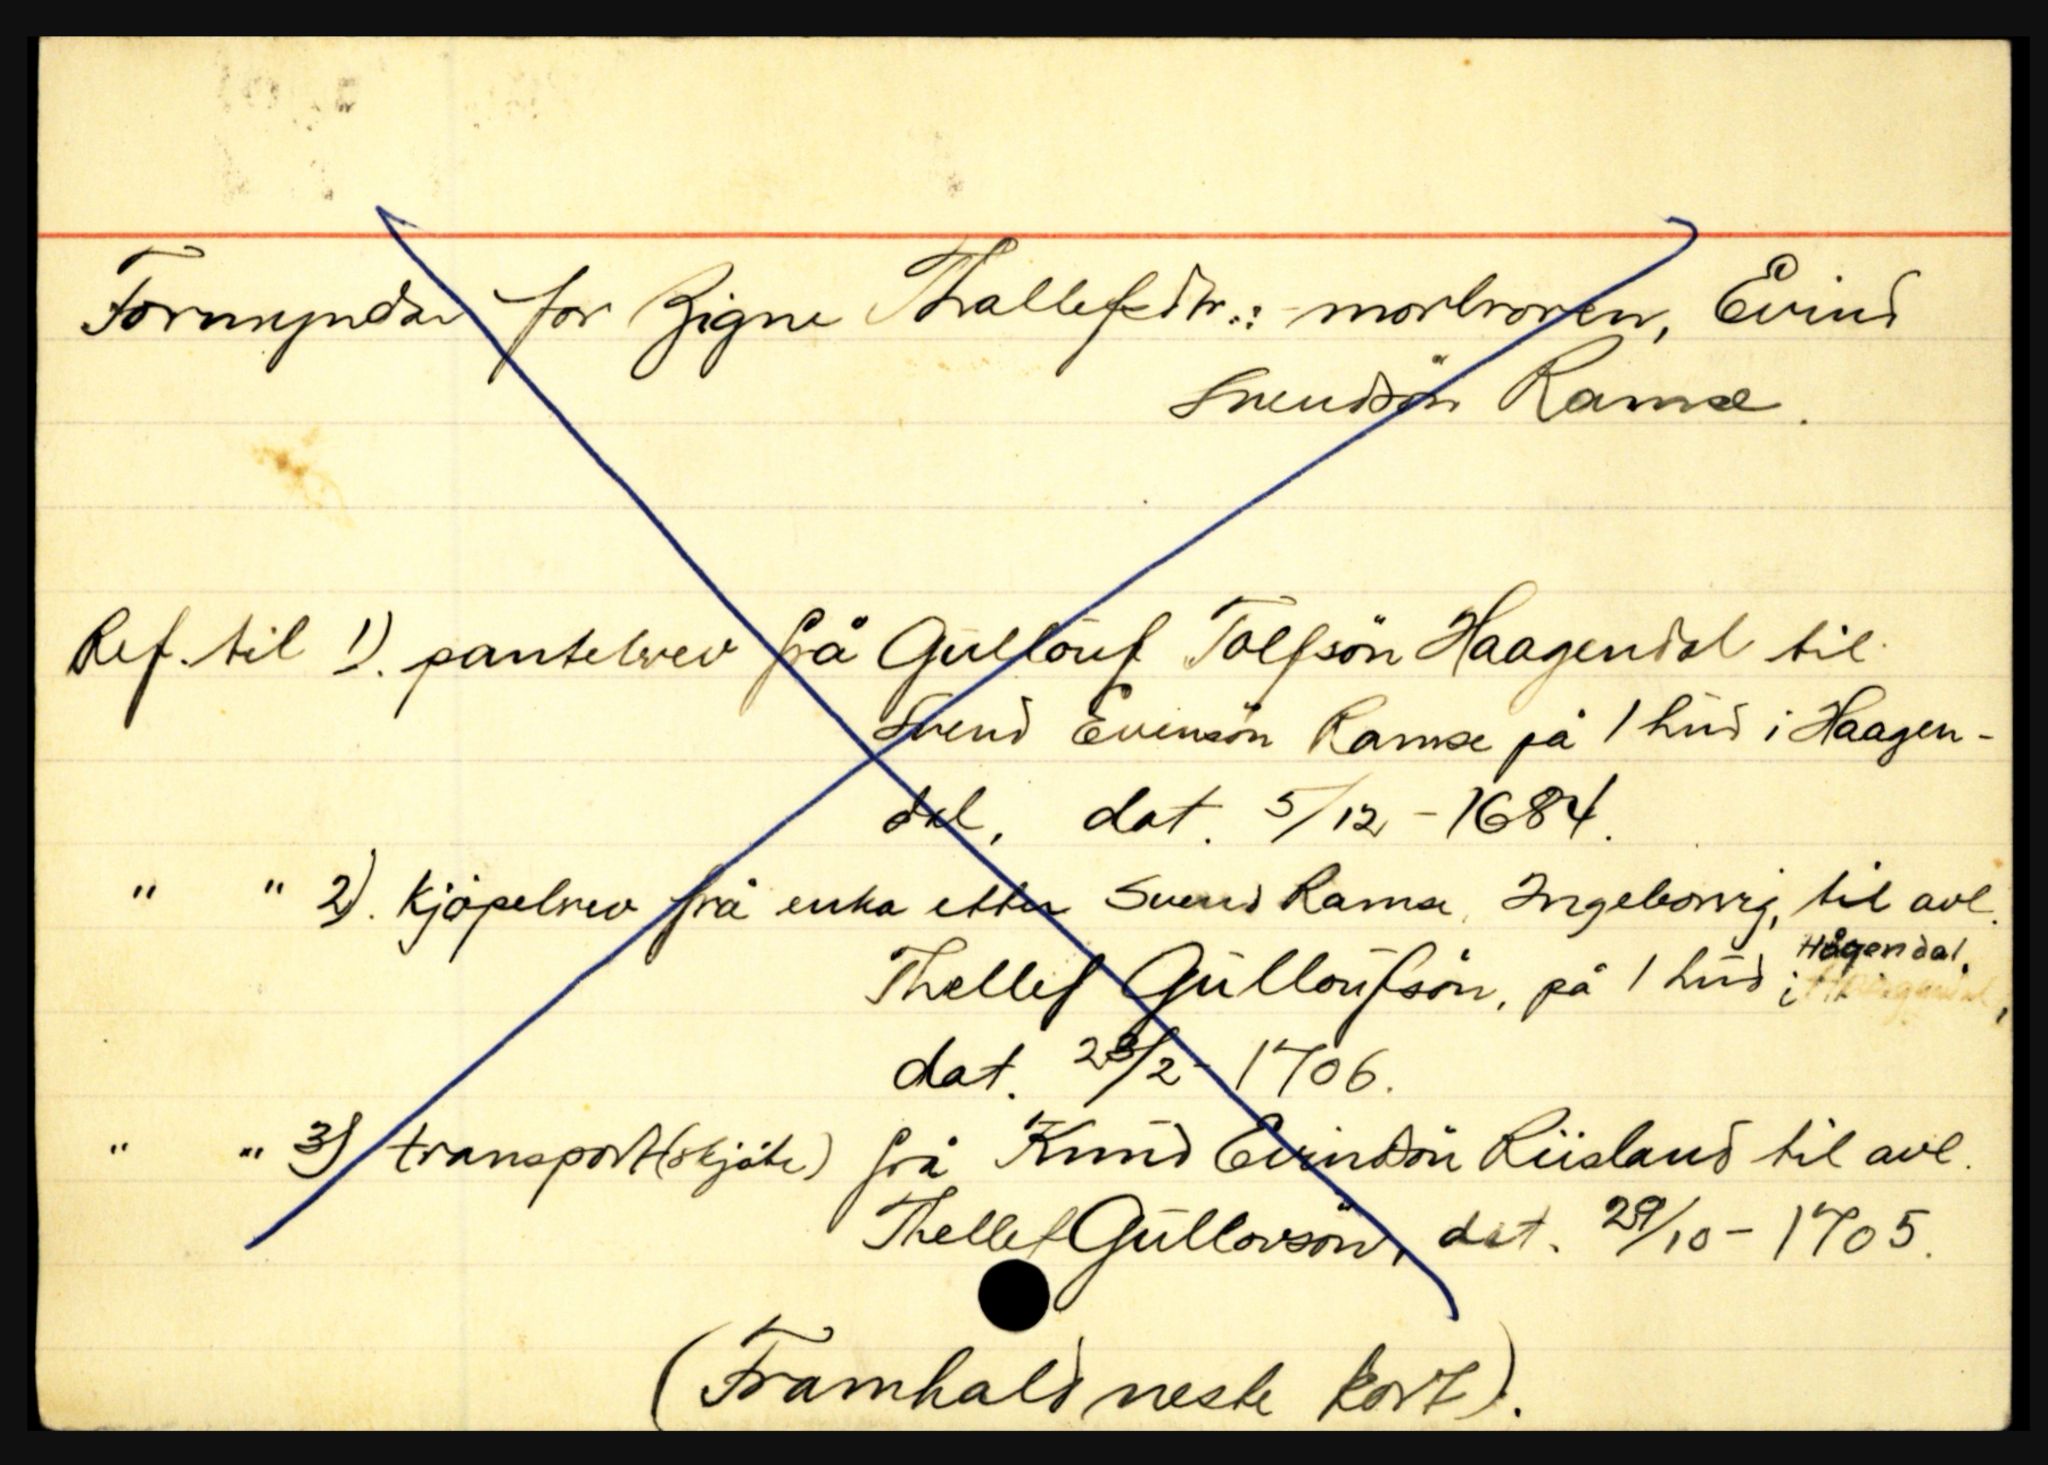 Formyndar for Zigne Thallefsdtr.: morbroren, Evind
Svendsön Ramse.
Ref. til 1). pantebrev frå Gullouf Tolfsön Haagendal til
Svend Evensön Ramse på 1 hud i Haagen-
dal, dat. 5/12-1684.
" " 2). Kjöpebrev frå enka etter Svend Ramse, Ingeborrig, til avl.
Thellef Gulloufsön, på 1 hud i Hågendal,
dat. 23/2-1706.
" " 3) transport (skjöte) frå Knud Evindsön Riisland til avl.
Thellef Gullovsön, dat. 29/10-1705.
(Framhald neste kort).